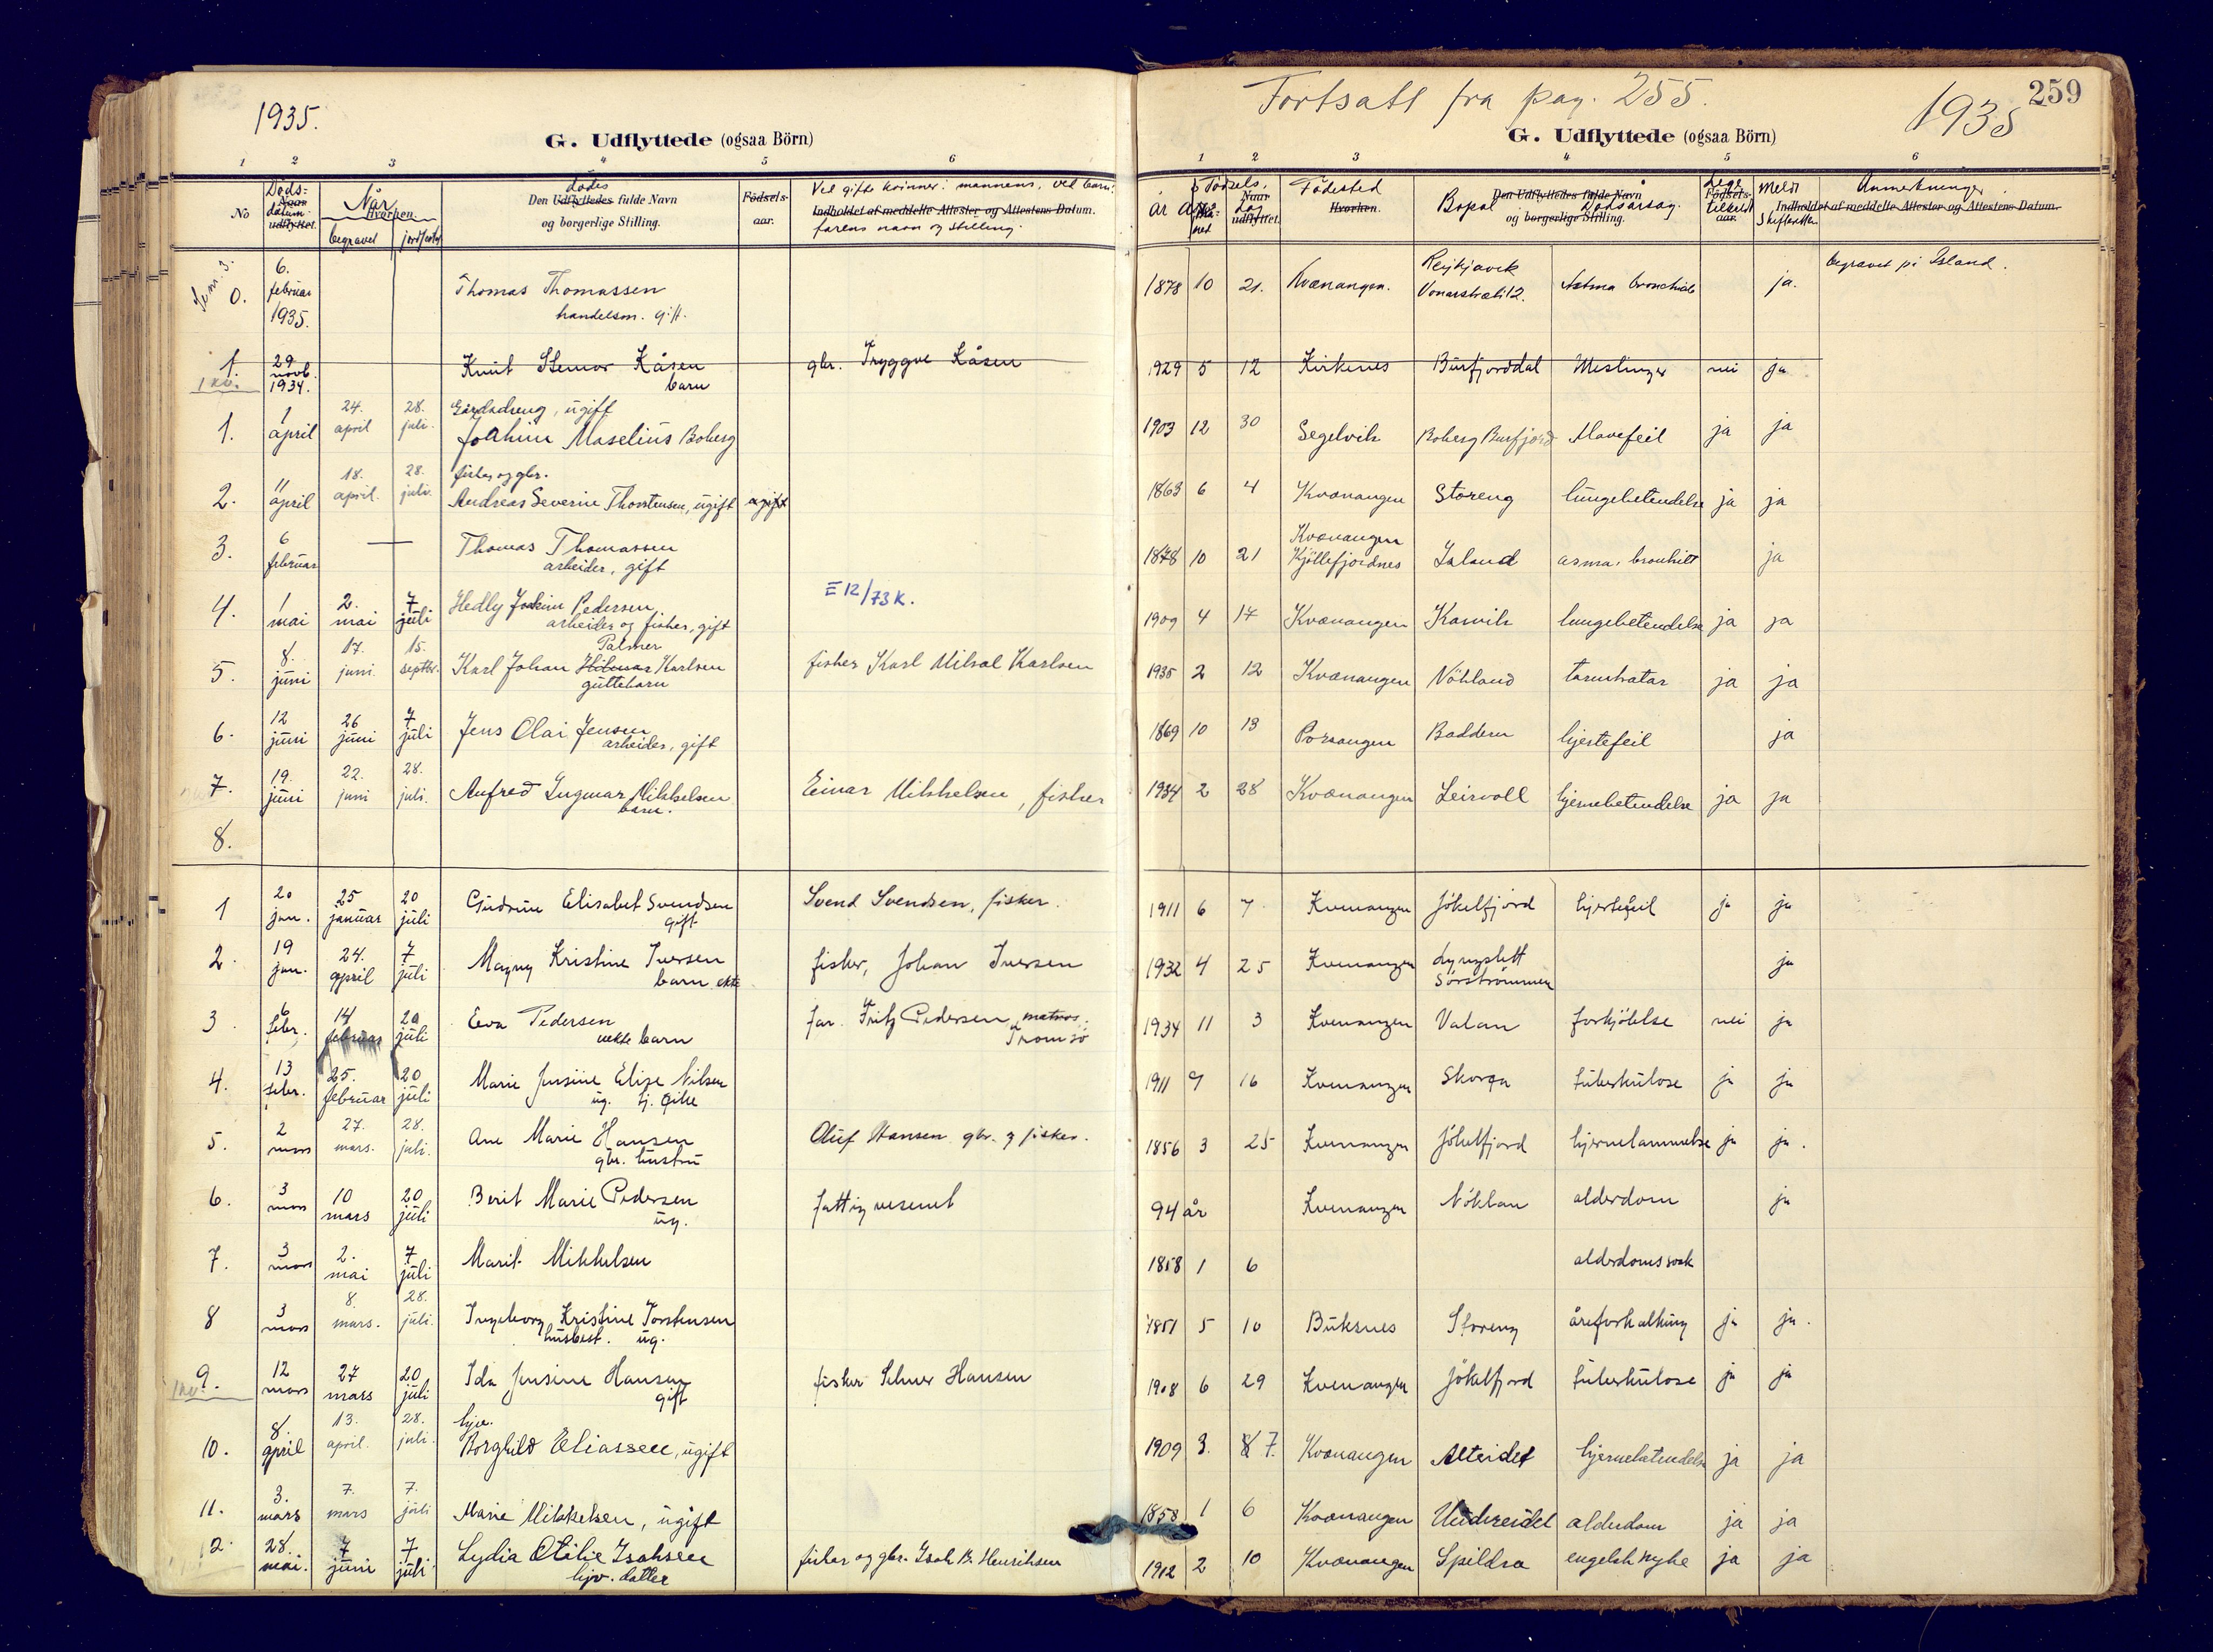 1935.
G. Udflyttede (ogsaa Börn)
1 2 3 4 5 6
No
Döds-
Naar
datum
udflyttet.
Når
Hvorhen.
begravet
Den Udflyttedes fulde Navn
dödes
og borgerlige Stilling.
Födsels-
aar.
Ved gifte kvinner: mannens, ved barn:
Indholdet af meddelte Attester og Attestens Datum.
farens navn og stilling.
0. 6. februar 1935. Thomas Thomassen
handelsm. gift.
1. 29 novb. 1934. Knut Stenor Kåsen gbr. Tryggve Kåsen
1 kv. barn
Gårdsdreng, ugift
1. 1 april 24. april 28. juli. Joakim Maselius Boberg
fisker og gbr.
2. 11 april 18. april. 28. juli. Andreas Severin Thorstensen, ugift ugift
3. 6 februar — Thomas Thomassen
arbeider, gift
4. 1 mai 2. mai 7 juli Hedly Joakim Pedersen II 12/73 K.
arbeider og fisker, gift
Palmer
5. 8. juni 17. juni 15. septbr. Karl Johan Hilmar Karlsen fisker Karl Mikal Karlsen
guttebarn
6. 12 juni 26 juni 7 juli Jens Olai Jensen
arbeider, gift
7. 19. juni 22. juni 28. juli. Anfred Ingmar Mikkelsen Einar Mikkelsen, fisker
barn.
8.
1 20 jan. 25 januar 20 juli Gudrun Elisabet Svendsen Svend Svendsen, fisker.
gift
2. 19 jan. 24. april 7 juli Magny Kristine Iversen fisker, Johan Iversen
barn ekte
3. 6 febr. 14 februar 20 juli Eva Pedersen far. Fritz Pedersen matros.
uekte barn Tromsö
4. 13 febr. 25. februar 20 juli Marie Jensine Elise Nilsen
ug. tj. pike
5. 2 mars 27. mars. 28. juli. Ane Marie Hansen Oluf Hansen gbr. og fisker.
gbr. hustru
6. 3 mars 10 mars 20 juli Berit Marie Pedersen fattigvesenet
ug.
7. 3 mars 2. mai 7 juli Marit Mikkelsen
8 3 mars 8. mars. 28. juli. Ingeborg Kristine Torstensen
husbest. ug.
9. 12 mars 27 mars 20 juli Ida Jensine Hansen fisker Selmer Hansen
1 kv. gift
hjv.
10. 8. april 13. april. 28. juli. Borghild Eliassen, ugift
11. 3. mars 7. mars 7. juli Marie Mikkelsen, ugift
12. 28. mai. 7 juni 7 juli Lydia Otilie Isaksen fisker og gbr. Isak B. Henriksen
hjv. datter
Fortsatt fra pag. 255.
1935
259
G. Udflyttede (ogsaa Börn)
1 2 3 4 5 6
Födsels.
år
Naar
dag
udflyttet.
Födested
Hvorhen.
Bopæl
Den Udflyttedes fulde Navn
Dödsårsag.
og borgerlige Stilling.
Lege
Födsels-
tilkaldt
aar.
Meldt
Skifteretten
Anmerkninger.
Indholdet af meddelte Attester og Attestens Datum.
1878 10 21. Kvænangen. Reykjavik Vonarstræti 12. Astma bronchiale ja. begravet på Island.
1929 5 12 Kirkenes Burfjorddal Meslinger nei ja
1903 12 30 Segelvik Boberg Burfjord Mavefeil ja ja
1863 6 4 Kvænangen Storeng lungebetendelse ja ja
1878 10 21 Kvænangen Kjöllefjordnes Island asma. bronkitt ja
1909 4 17 Kvænangen Karvik lungebetendelse ja ja
1935 2 12 Kvænangen Nökland tarmkatar ja ja
1869 10 13 Porsangen Baddern hjertefeil ja
1934 2 28 Kvænangen Leirvoll hjernebetendelse ja ja
1911 6 7 Kvenangen Jökelfjord hjertefeil ja ja
1932 4 25 Kvenangen Lyngslett Sörströmmen ja
1934 11 3 Kvenangen Valan forkjölelse nei ja
1911 9 16 Kvenangen Skorpa tuberkulose ja ja
1856 3 25 Kvenangen Jökelfjord hjernelammelse ja ja.
94 år Kvenangen Nöklan alderdom ja
1858 1 6 alderdomssvak
1851 5 10 Buksnes Storeng åreforkalkning ja ja.
1908 6 29 Kvenangen Jökelfjord tuberkulose ja ja
1909 3. 8 7. Kvænangen Alteidet hjernebetendelse ja ja
1858 1 6 Kvænangen Undereidet alderdom ja ja
1912 2 10 Kvænangen Spildra engelsk syke ja ja